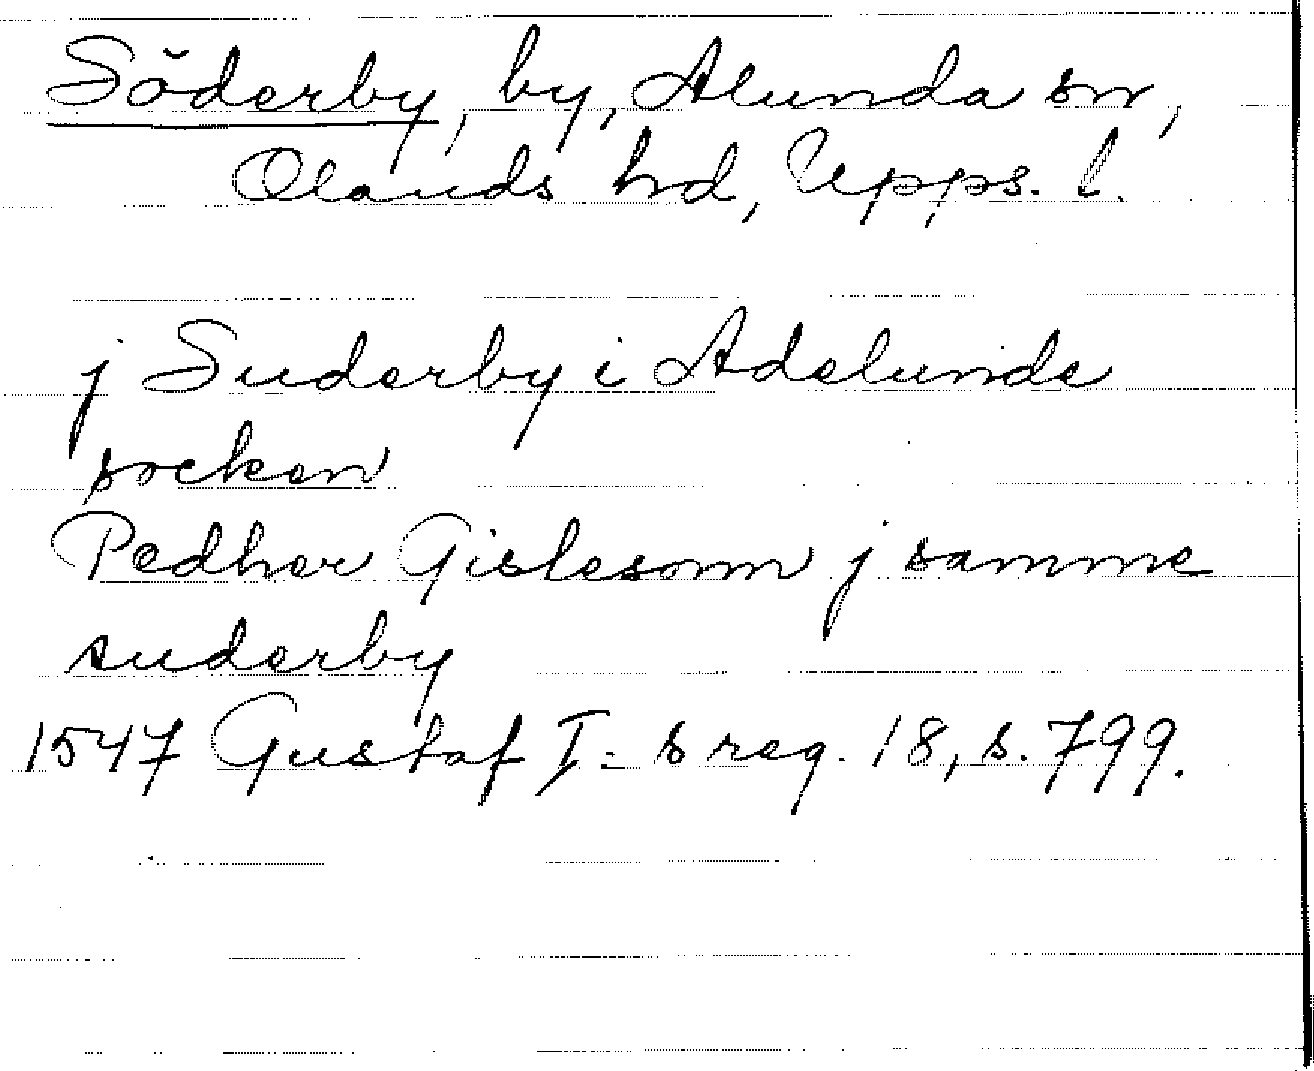 Söderby, by, Alunda sn,
Olands hd, Upps. l.
j Suderby i Adelunda
socken
Pedher Gislesonn j samme
suderby
1547 Gustaf I:s reg. 18, s. 799.